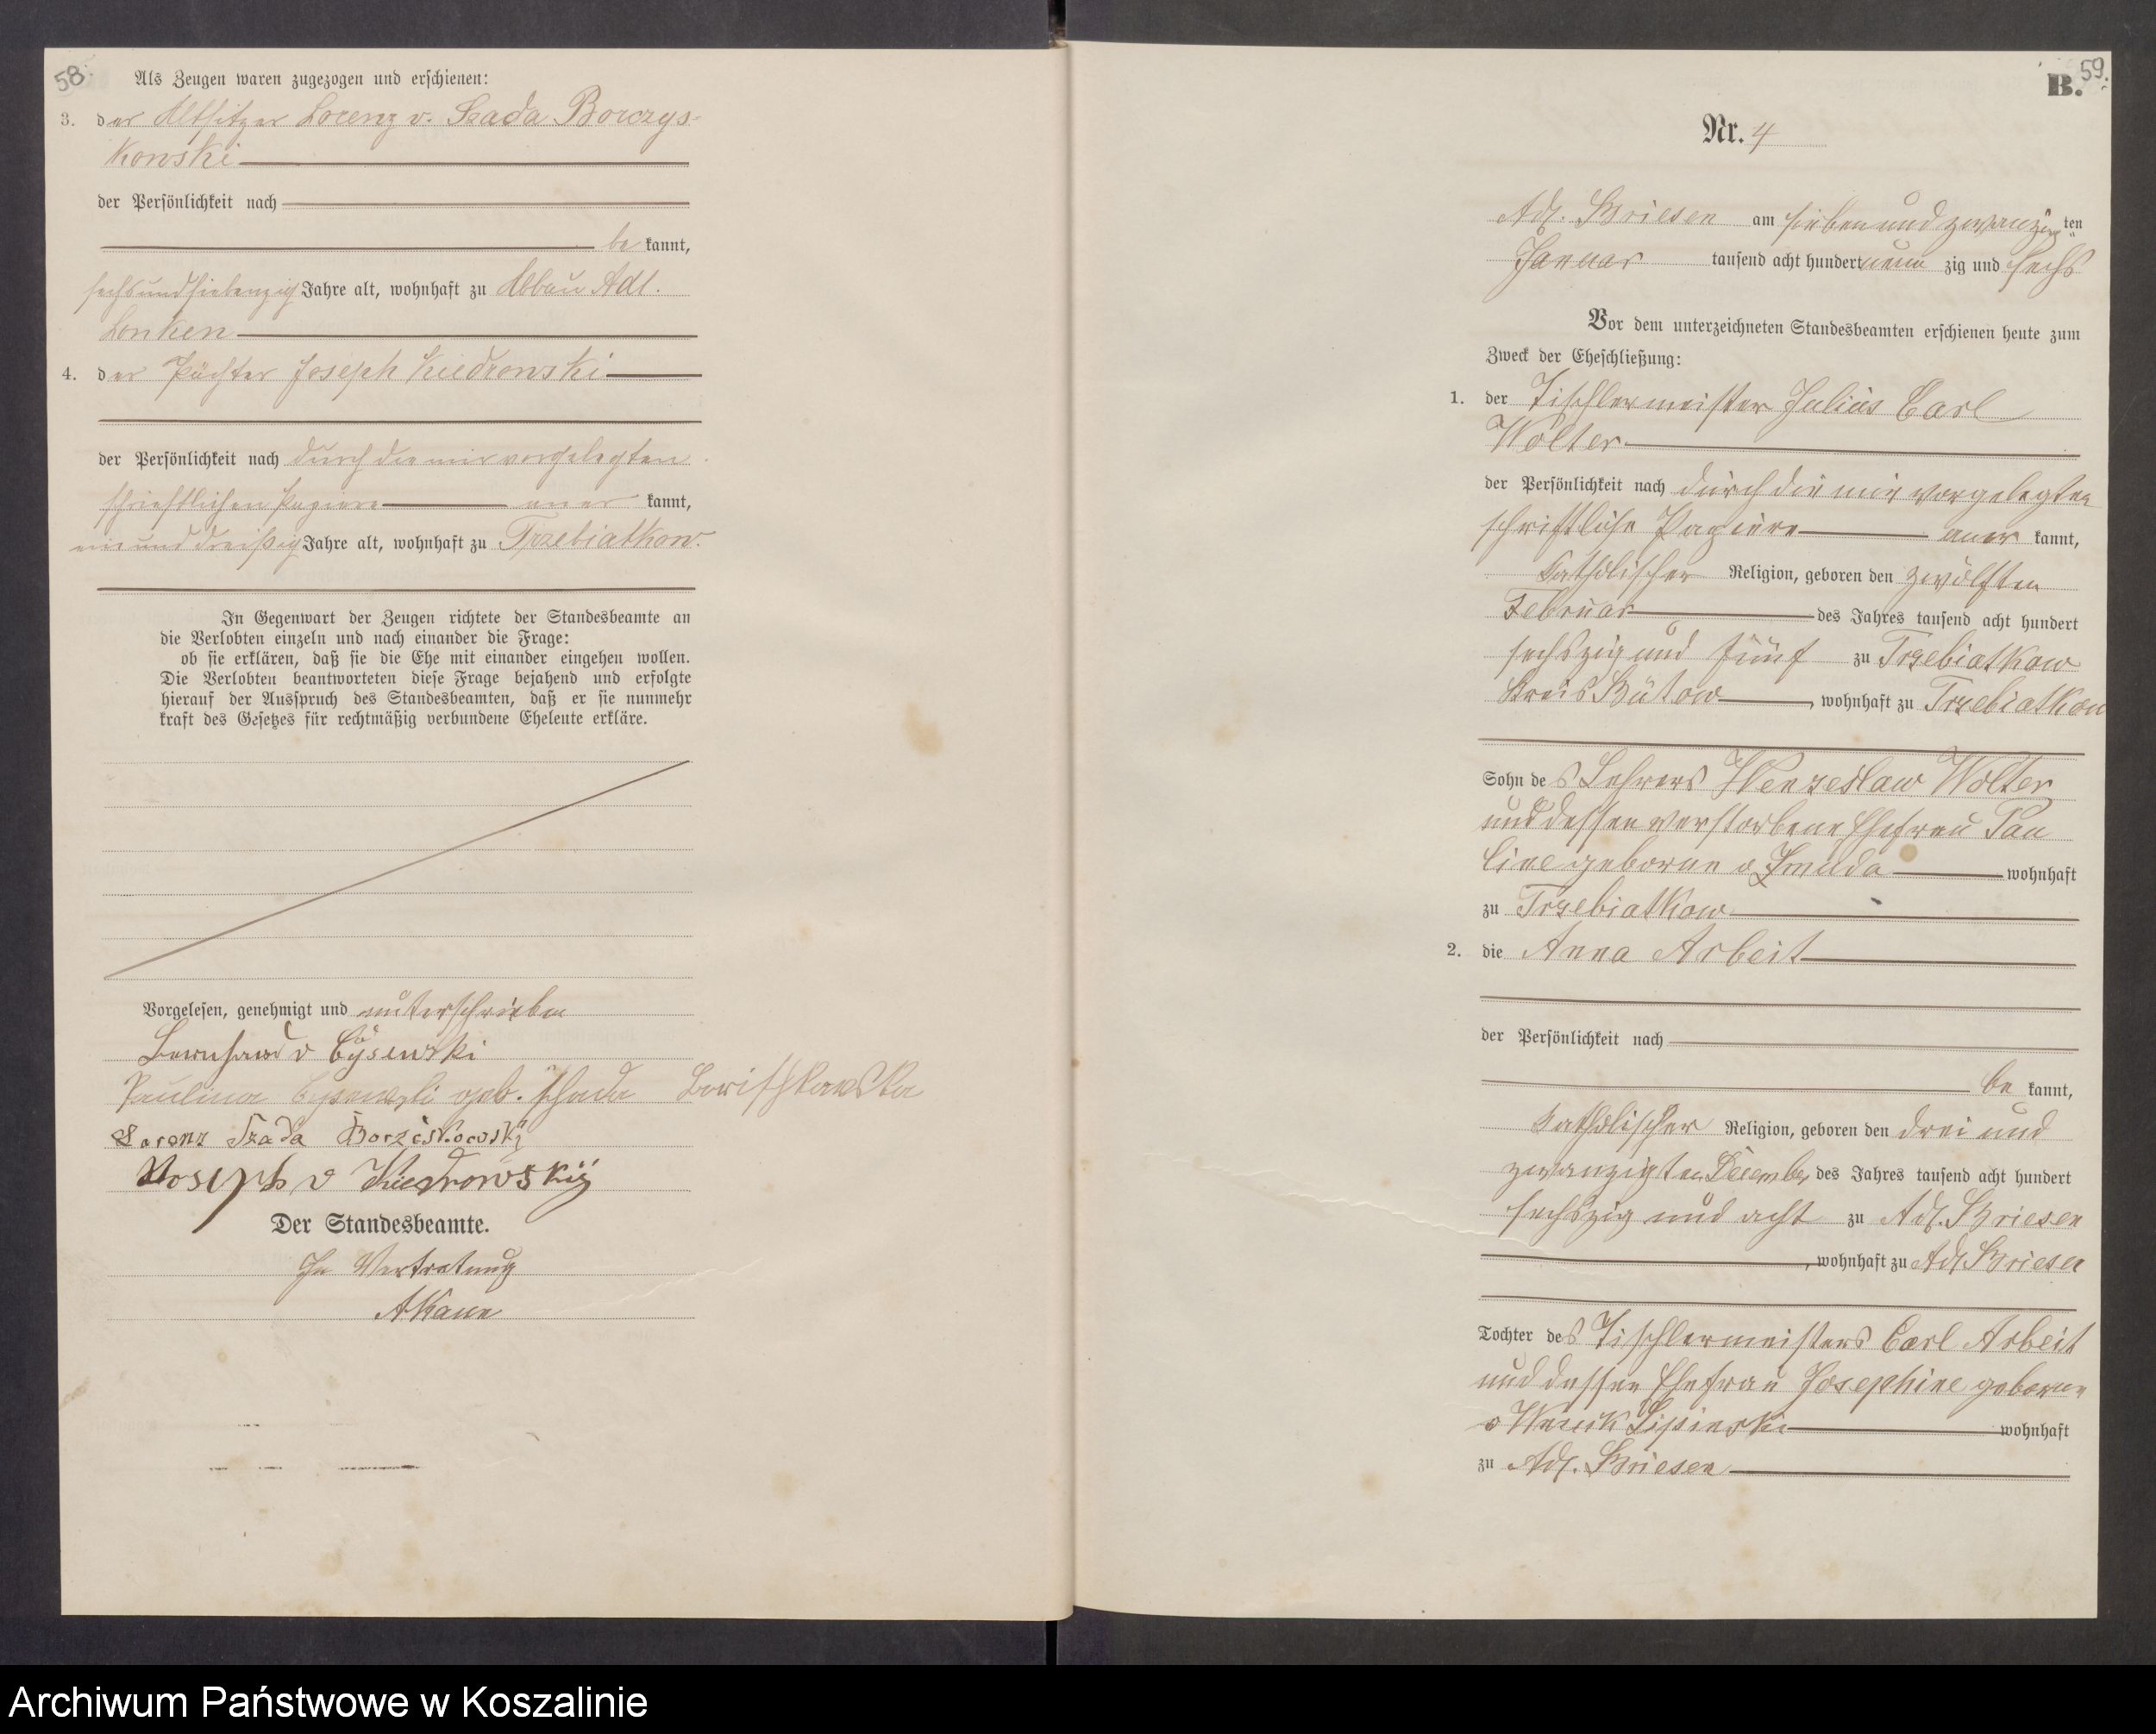 58.
Als Zeugen waren zugezogen und erschienen:
3. der Altsitzer Lorenz v. Szada Borczys-
kowski
der Persönlichkeit nach
be kannt,
sechsundsiebenzig Jahre alt, wohnhaft zu Abbau Adl.
Lonken
4. der Pächter Joseph Kiedrowski
der Persönlichkeit nach durch die mir vorgelegten
schriftlichen Papiere aner kannt,
einunddreißig Jahre alt, wohnhaft zu Trzebiatkow.
In Gegenwart der Zeugen richtete der Standesbeamte an
die Verlobten einzeln und nach einander die Frage:
ob sie erklären, daß sie die Ehe mit einander eingehen wollen.
Die Verlobten beantworteten diese Frage bejahend und erfolgte
hierauf der Ausspruch des Standesbeamten, daß er sie nunmehr
kraft des Gesetzes für rechtmäßig verbundene Eheleute erkläre.
Vorgelesen, genehmigt und unterschrieben
Bernhard v Cysewski
Paulina Cysewski geb. Schada Borischkowska
Lorenz Szada Borziskowski
Joseph v Kiedrowski
Der Standesbeamte.
In Vertretung
AKann
B. 59.
Nr. 4
Adl. Briesen am siebenundzwanzig ten
Januar tausend acht hundert neun zig und sechs
Vor dem unterzeichneten Standesbeamten erschienen heute zum
Zweck der Eheschließung:
1. der Tischlermeister Julius Carl
Wolter
der Persönlichkeit nach durch die mir vorgelegten
schriftliche Papiere aner kannt,
katholischer Religion, geboren den zwölften
Februar des Jahres tausend acht hundert
sechszig und fünf zu Trzebiatkow
Kreis Bütow, wohnhaft zu Trzebiatkow
Sohn des Lehrers Wenzeslaw Wolter
und dessen verstorbene Ehefrau Pau
line geborne v Zmuda wohnhaft
zu Trzebiatkow
2. die Anna Arbeit
der Persönlichkeit nach
be kannt,
katholischer Religion, geboren den drei und
zwanzigten Dezember des Jahres tausend acht hundert
sechszig und acht zu Adl. Briesen
, wohnhaft zu Adl Briesen
Tochter des Tischlermeisters Carl Arbeit
und dessen Ehefrau Josephine geborne
v Wnuk Lipinski wohnhaft
zu Adl. Briesen
Archiwum Państwowe w Koszalinie